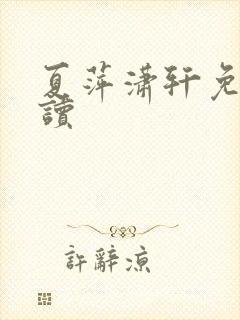 夏萍潇轩免
讀
許辭涼